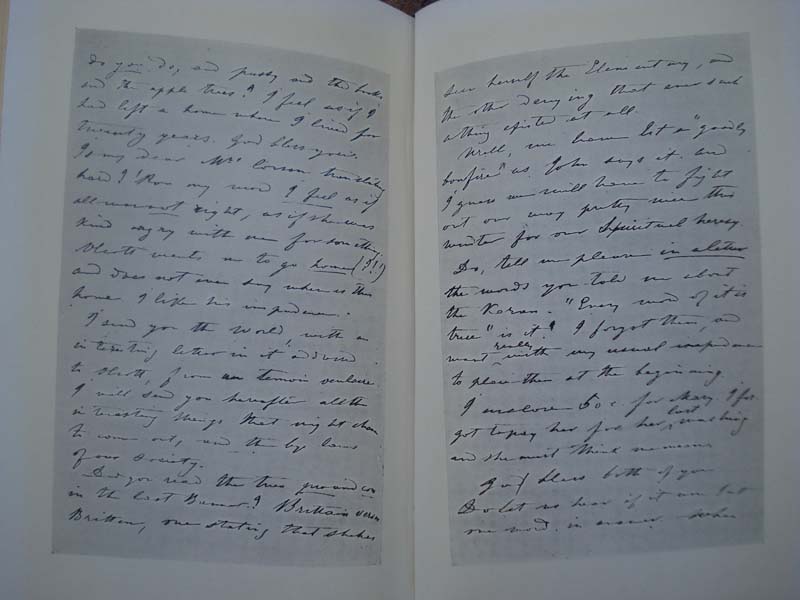 do you do, and pussy and the books
and the apple trees? I feel as if I
had left a home where I lived for
twenty years. God bless you.
Is my dear Mrs Corson
hard? For my word I feel as if
all was not right, as if she was
kind angry with me for something
Olcott wants me to go home (?!)
and does not even say where is this
home. I like his impudence.
I send you the World, with an
interesting letter in it addressed
to Olcott, from un temoin oculaire
I will send you hereafter all the
interesting things that might chance
to come out, and the by laws
of our Society.
Did you read the two pro and con
in the last Banner? Brittain versus
Britten, one stating that she has
seen herself the Elementary, and
the other denying that ever such
a thing existed at all.
Well, we have lit a "goodly
bonfire" as John says it and
I guess we will have to fight
out our way pretty well this
winter for our Spiritual heresy.
Do, tell me please in a letter
the words you told me about
the Koran. "Every word of it is
true" is it? I forgot them, and
want really with my usual impudence
to place them at the beginning.
I enclose 50 c. for Mary. I for-
got to pay her for her last washing
and she must think me mean
God bless both of you
Do let us hear if it is but
one word, in answer